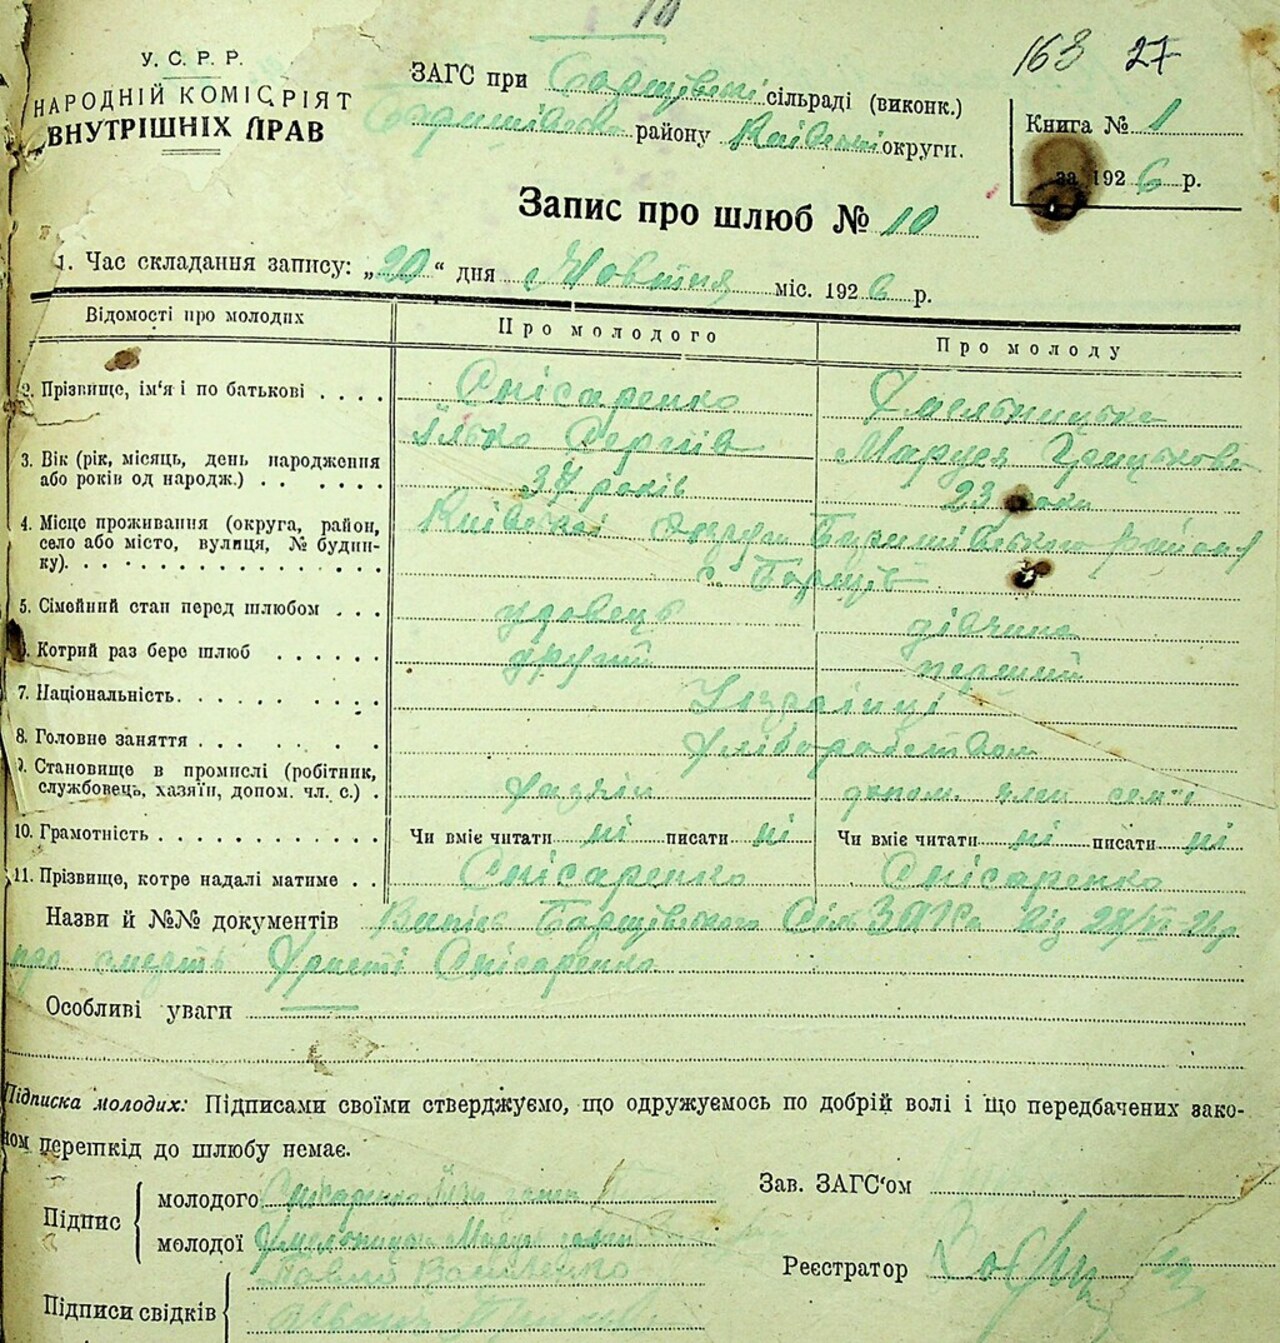 10
163 27
У. С. Р. Р.
НАРОДНІЙ КОМІСАРІЯТ
ВНУТРІШНІХ СПРАВ
ЗАГС при Борщівські сільраді (виконк.)
Баришівсько району Київські округи.
Книга № 1
за 1926 р.
Запис про шлюб № 10
1. Час складання запису: „20“ дня Жовтня міс. 1926 р.
Відомості про молодих Про молодого Про молоду
2. Прізвище, ім'я і по батькові . . . . Снісаренко Хмельницька
Ілько Сергіїв Маруся Грицькова
3. Вік (рік, місяць, день народження
або років од народж.) . . . . . . 37 років 23 роки
4. Місце проживання (округа, район,
село або місто, вулиця, № будин-
ку). Київської Округи Баришівського району
с. Борщів
5. Сімейний стан перед шлюбом . . . удовець дівчина
6. Котрий раз бере шлюб . . . . . . другий перший
7. Національність. Українці
8. Головне заняття . . . Хліборобством
9. Становище в промислі (робітник,
службовець, хазяїн, допом. чл. с.) . хазяін допом. член сем'ї
10. Грамотність Чи вміє читати ні писати ні Чи вміє читати ні писати ні
11. Прізвище, котре надалі матиме . . Снісаренко Снісаренко
Назви й №№ документів Випис Борщівського Сіль ЗАГСа від
про смерть Христі Снісаренко
Особливі уваги
Підписка молодих: Підписами своїми стверджуємо, що одружуємось по добрій волі і що передбачених зако-
ном перешкід до шлюбу немає.
Підпис
молодого Снісаренко
молодої Хмельницька
Зав. ЗАГС'ом
Реєстратор
Підписи свідків
Павло Василенко
Іван